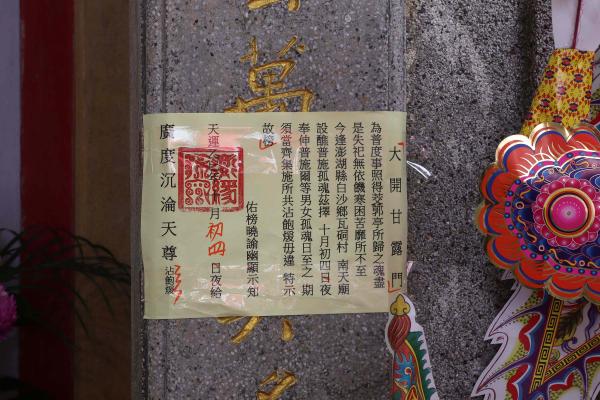 萬
大開甘露門
為普度事照得茭郭亭所歸之魂盡
是失祀無依饑寒困苦靡所不至
今逢澎湖縣白沙鄉瓦硐村 南天廟
設醮普施孤魂茲擇 十月初四日夜
奉伸普施爾等男女孤魂日至之 期
須當齊集施所共沾飽煖毋違 特示
故榜
佑榜曉諭幽顯示知
天運 月初四日夜給
廣度沉淪天尊 沾飽煖